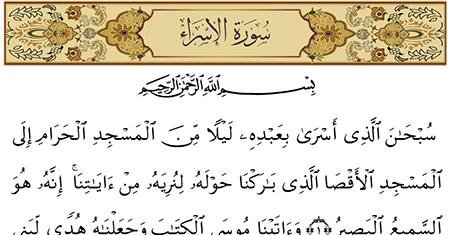 سُورَةُ الإِسْرَاء
بِسْمِ اللَّهِ الرَّحْمَٰنِ الرَّحِيمِ
سُبْحَـٰنَ ٱلَّذِىٓ أَسْرَىٰ بِعَبْدِهِۦ لَيْلًا مِّنَ ٱلْمَسْجِدِ ٱلْحَرَامِ إِلَى
ٱلْمَسْجِدِ ٱلْأَقْصَا ٱلَّذِى بَـٰرَكْنَا حَوْلَهُۥ لِنُرِيَهُۥ مِنْ ءَايَـٰتِنَآ ۚ إِنَّهُۥ هُوَ
ٱلسَّمِيعُ ٱلْبَصِيرُ ﴿١﴾ وَءَاتَيْنَا مُوسَى ٱلْكِتَـٰبَ وَجَعَلْنَـٰهُ هُدًى لِّبَنِىٓ